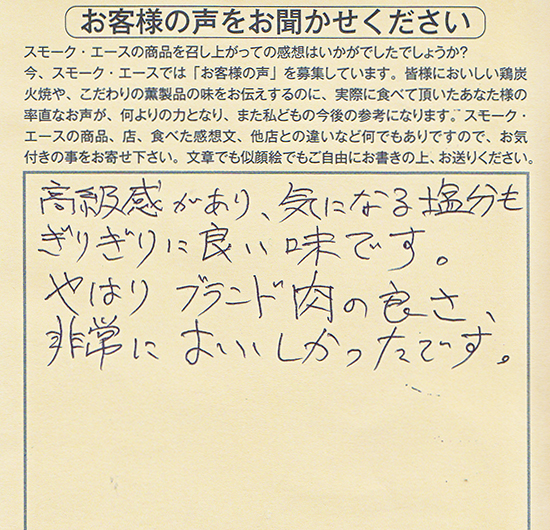 お客様の声をお聞かせください
スモーク・エースの商品を召し上がっての感想はいかがでしたでしょうか?
今、スモーク・エースでは「お客様の声」を募集しています。皆様においしい鶏炭
火焼や、こだわりの薫製品の味をお伝えするのに、実際に食べて頂いたあなた様の
率直なお声が、何よりの力となり、また私どもの今後の参考になります。スモーク・
エースの商品、店、食べた感想文、他店との違いなど何でもありですので、お気
付きの事をお寄せ下さい。文章でも似顔絵でもご自由にお書きの上、お送りください。
高級感があり、気になる塩分も
ぎりぎりに良い味です。
やはりブランド肉の良さ、
非常においいしかったです。